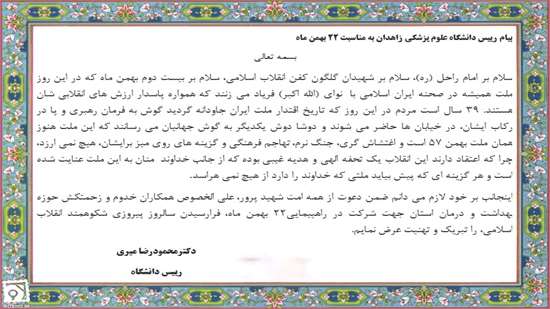 پیام رییس دانشگاه علوم پزشکی زاهدان به مناسبت ۲۲ بهمن ماه
بسمه تعالی
سلام بر امام راحل (ره)، سلام بر شهیدان گلگون کفن انقلاب اسلامی، سلام بر بیست دوم بهمن ماه که در این روز
ملت همیشه در صحنه ایران اسلامی با نوای (الله اکبر) فریاد می زنند که همواره پاسدار ارزش های انقلابی شان
هستند. ۳۹ سال است مردم در این روز که تاریخ اقتدار ملت ایران جاودانه گردید گوش به فرمان رهبری و پا در
رکاب ایشان، در خیابان ها حاضر می شوند و دوشا دوش یکدیگر به گوش جهانیان می رسانند که این ملت هنوز
همان ملت بهمن ۵۷ است و اغتشاش گری، جنگ نرم، تهاجم فرهنگی و گزینه های روی میز برایشان، هیچ نمی ارزد،
چرا که اعتقاد دارند این انقلاب یک تحفه الهی و هدیه غیبی بوده که از جانب خداوند منان به این ملت عنایت شده
است و هر گزینه ای که پیش بیاید ملتی که خداوند را دارد از هیچ نمی هراسد.
اینجانب بر خود لازم می دانم ضمن دعوت از همه امت شهید پرور، علی الخصوص همکاران خدوم و زحمتکش حوزه
بهداشت و درمان استان جهت شرکت در راهپیمایی۲۲ بهمن ماه، فرارسیدن سالروز پیروزی شکوهمند انقلاب
اسلامی، را تبریک و تهنیت عرض نمایم.
دکترمحمودرضا میری
رییس دانشگاه